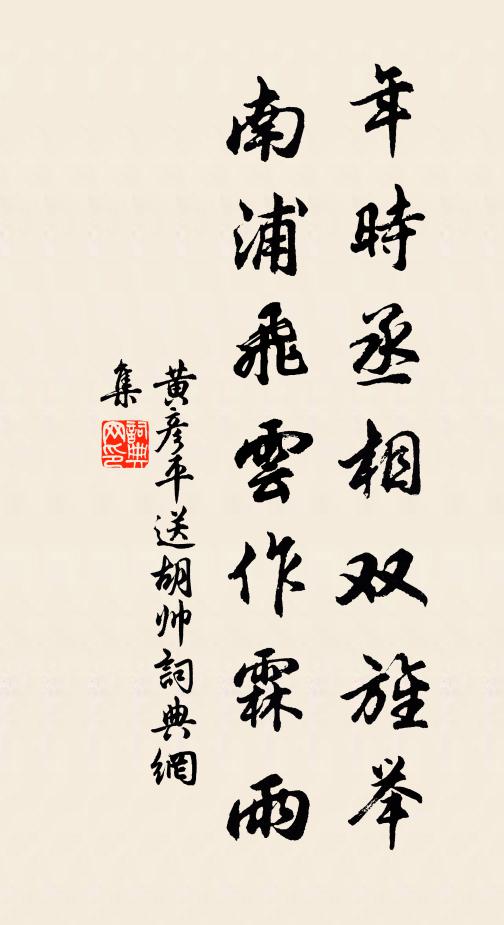 年時丞相双旌举
南浦飛雲作霖雨
黃彦平送胡帅詞典網
集
詞典网印